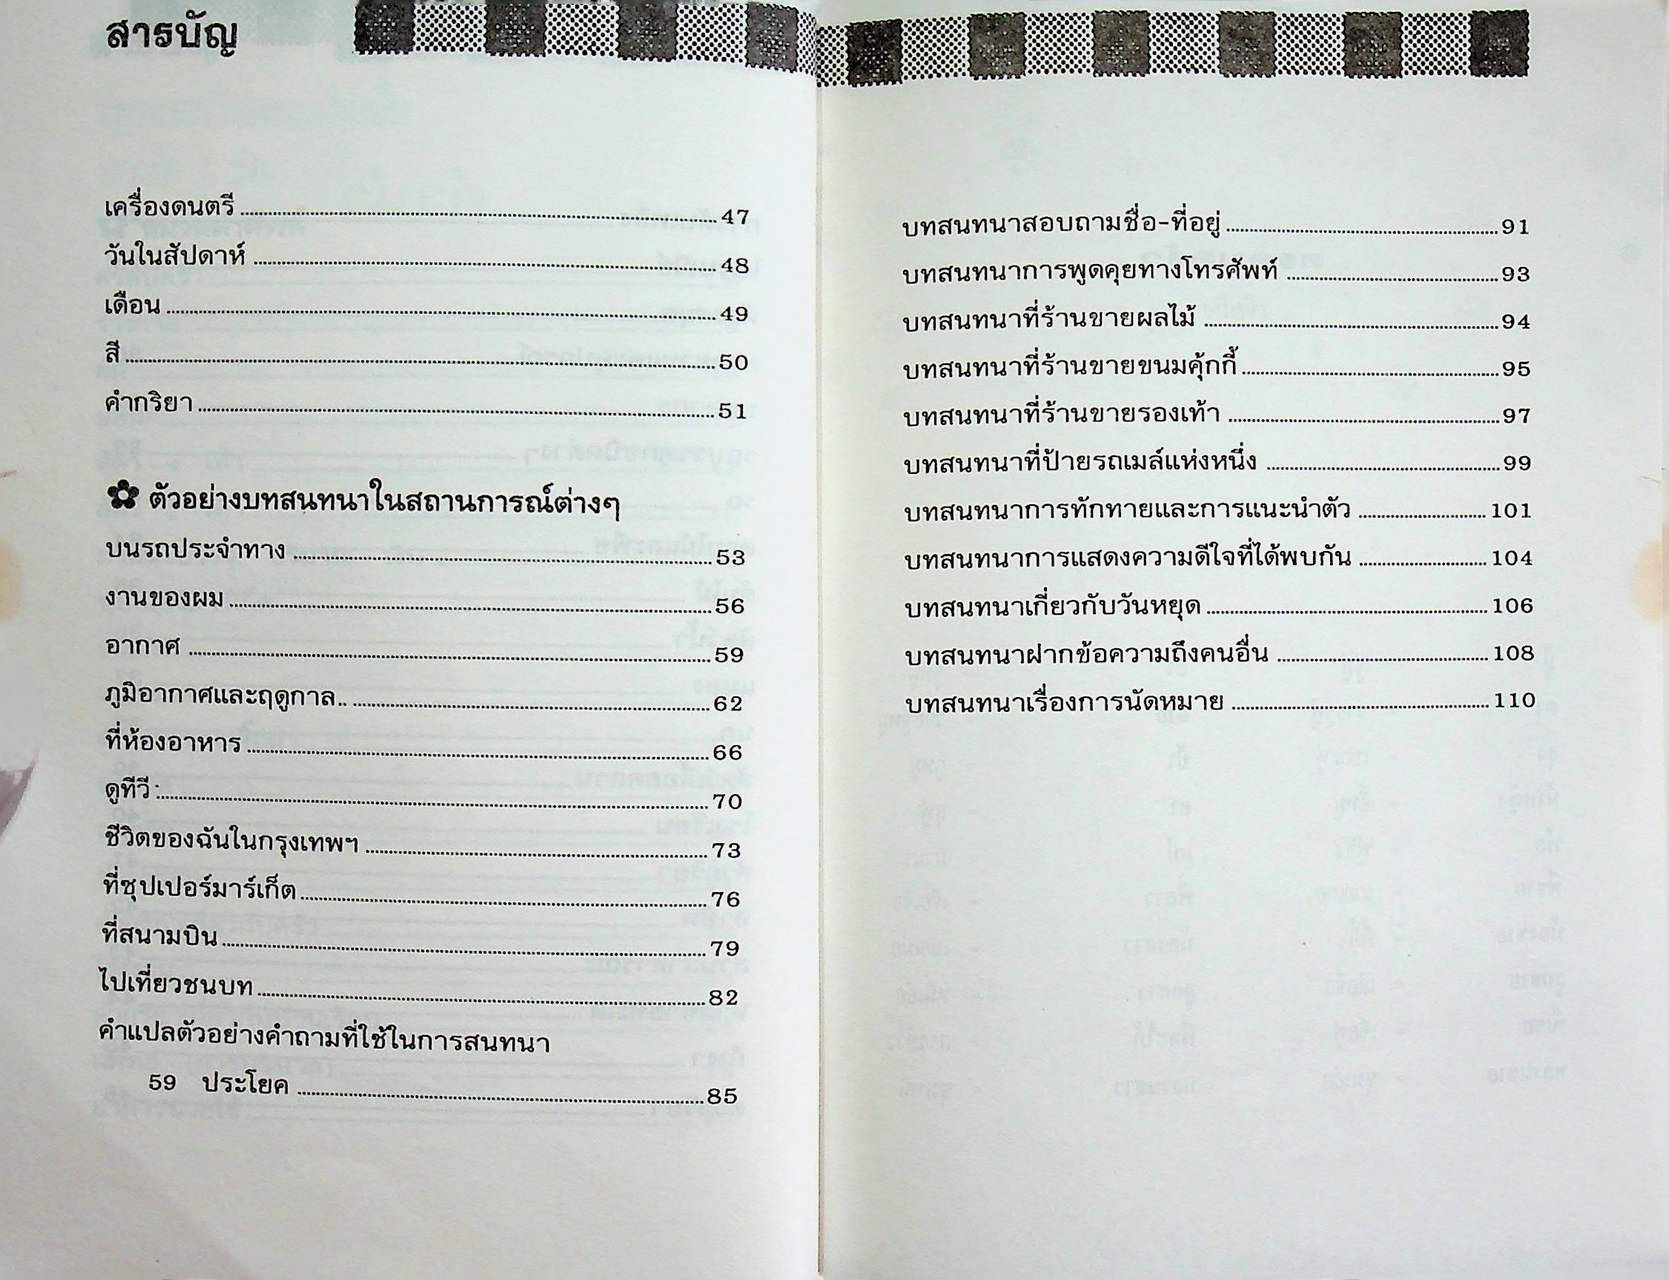 สารบัญ
เครื่องดนตรี ........ 47
วันในสัปดาห์ ........ 48
เดือน ........ 49
สี ........ 50
คำกริยา ........ 51
✿ ตัวอย่างบทสนทนาในสถานการณ์ต่างๆ
บนรถประจำทาง ........ 53
งานของผม ........ 56
อากาศ ........ 59
ภูมิอากาศและฤดูกาล ........ 62
ที่ห้องอาหาร ........ 66
ดูทีวี ........ 70
ชีวิตของฉันในกรุงเทพฯ ........ 73
ที่ซุปเปอร์มาร์เก็ต ........ 76
ที่สนามบิน ........ 79
ไปเที่ยวชนบท ........ 82
คำแปลตัวอย่างคำถามที่ใช้ในการสนทนา
59 ประโยค ........ 85
บทสนทนาสอบถามชื่อ-ที่อยู่ ........ 91
บทสนทนาการพูดคุยทางโทรศัพท์ ........ 93
บทสนทนาที่ร้านขายผลไม้ ........ 94
บทสนทนาที่ร้านขายขนมคุ้กกี้ ........ 95
บทสนทนาที่ร้านขายรองเท้า ........ 97
บทสนทนาที่ป้ายรถเมล์แห่งหนึ่ง ........ 99
บทสนทนาการทักทายและการแนะนำตัว ........ 101
บทสนทนาการแสดงความดีใจที่ได้พบกัน ........ 104
บทสนทนาเกี่ยวกับวันหยุด ........ 106
บทสนทนาฝากข้อความถึงคนอื่น ........ 108
บทสนทนาเรื่องการนัดหมาย ........ 110